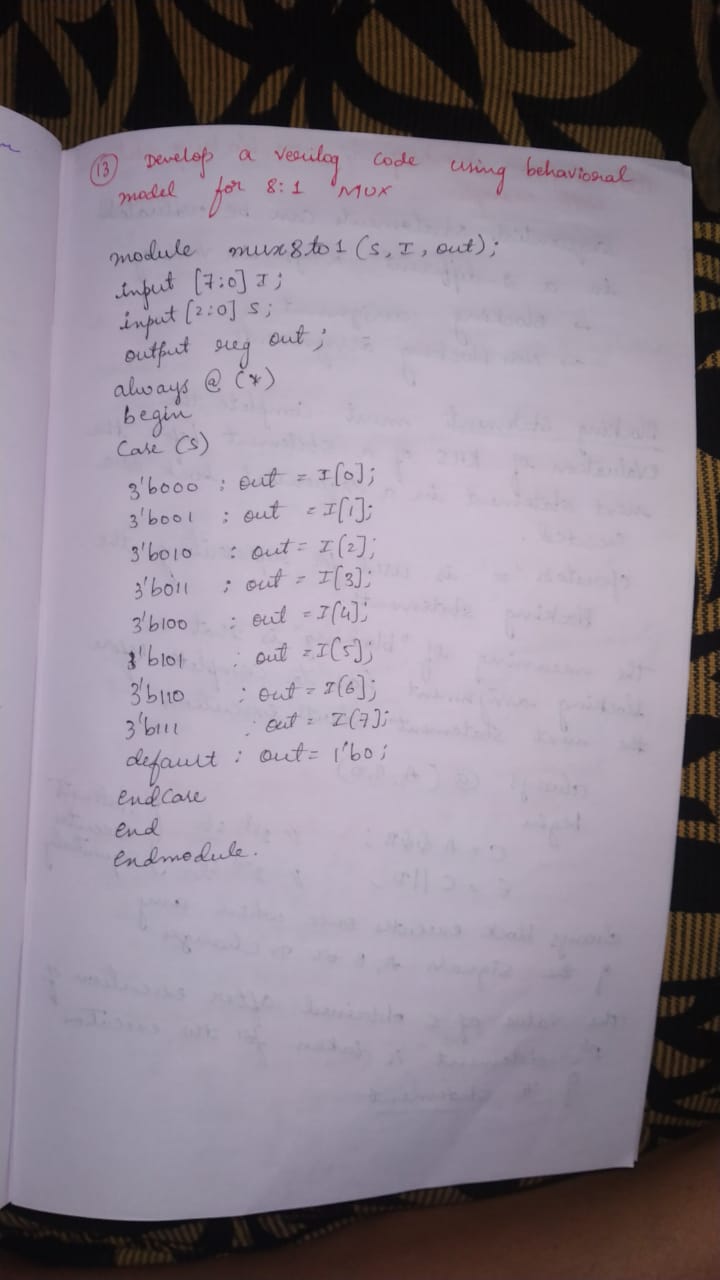 (13) Develop a verilog code using behavioral
model for 8:1 MUX
module mux8to1 (S, I, out);
input [7:0] I;
input [2:0] S;
output reg out;
always @ (*)
begin
Case (S)
3'b000 : out = I[0];
3'b001 : out = I[1];
3'b010 : out = I[2];
3'b011 : out = I[3];
3'b100 : out = I[4];
3'b101 : out = I[5];
3'b110 : out = I[6];
3'b111 : out = I[7];
default : out = 1'b0;
endCase
end
endmodule.